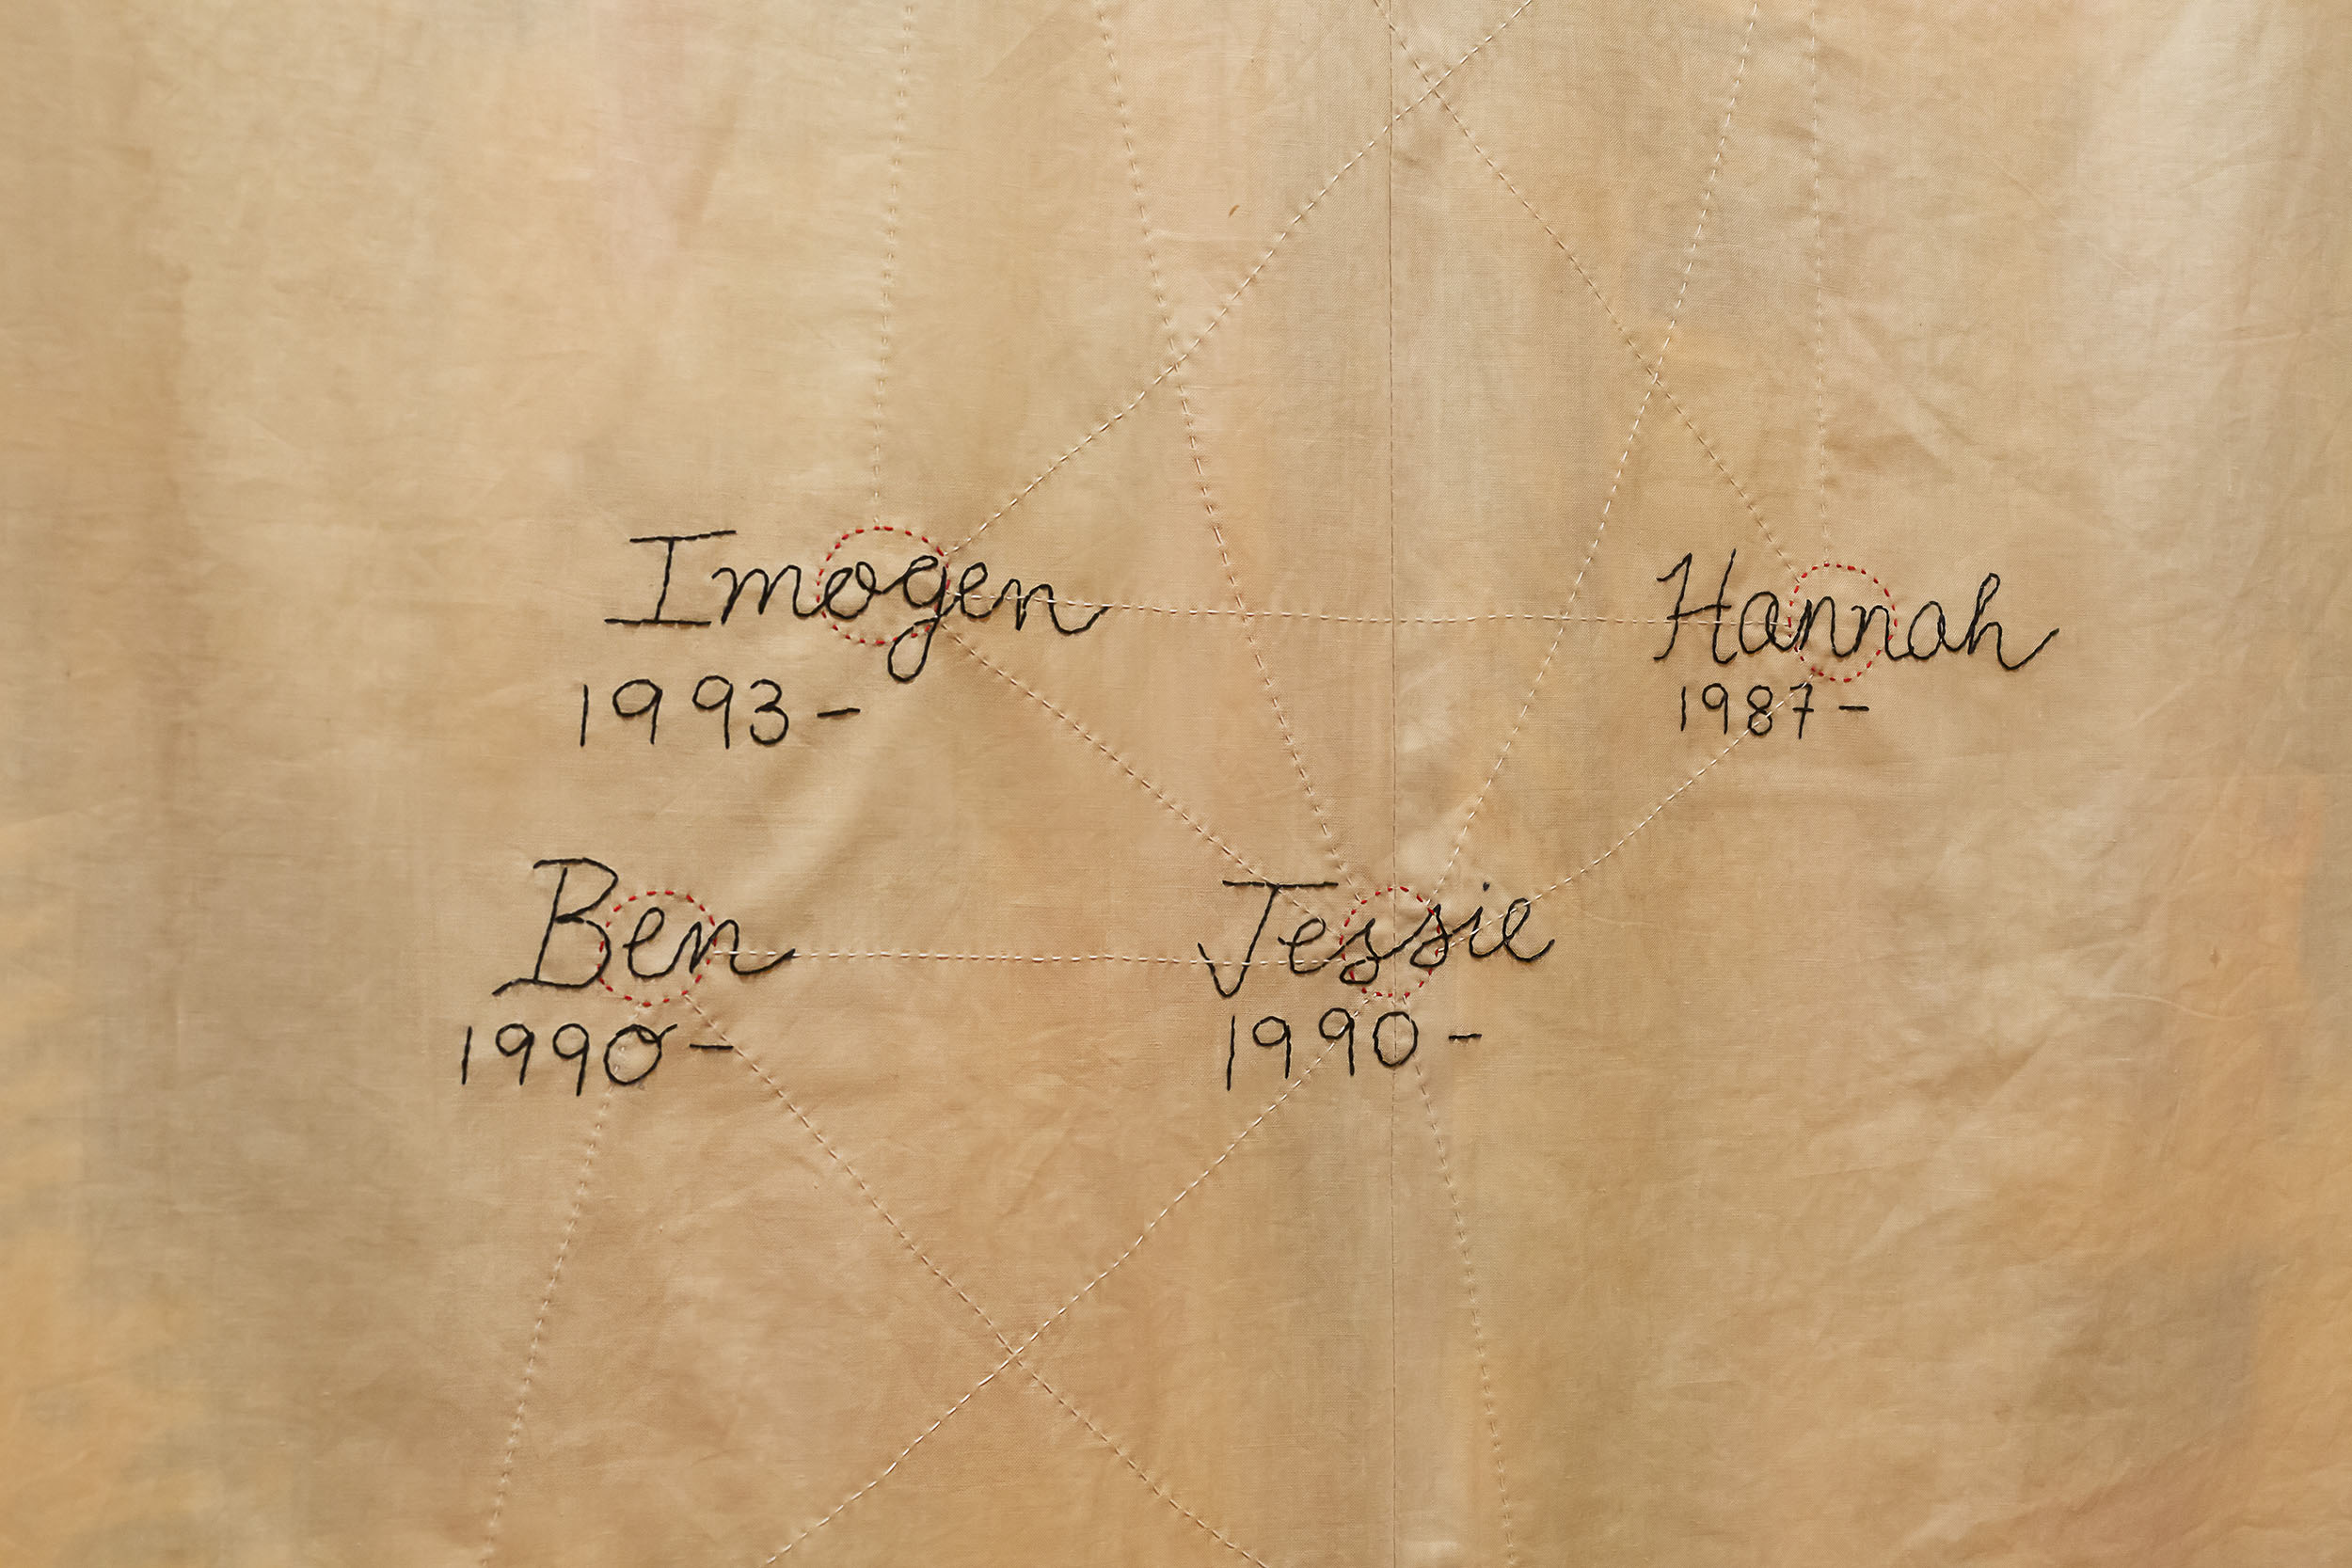 Imogen
1993-
Hannah
1987-
Ben
1990-
Jessie
1990-